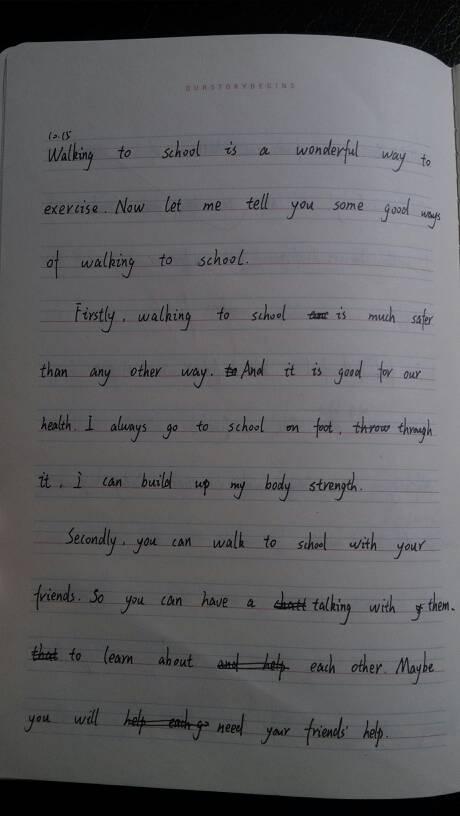 OURSTORYBEGINS
10.15
Walking to school is a wonderful way to
exercise. Now let me tell you some good ways
of walking to school.
Firstly, walking to school is much safer
than any other way. to And it is good for our
health. I always go to school on foot, throw through
it, I can build up my body strength.
Secondly, you can walk to school with your
friends. So you can have a chatt talking with them.
that to learn about and help each other. Maybe
you will help each go need your friends' help.